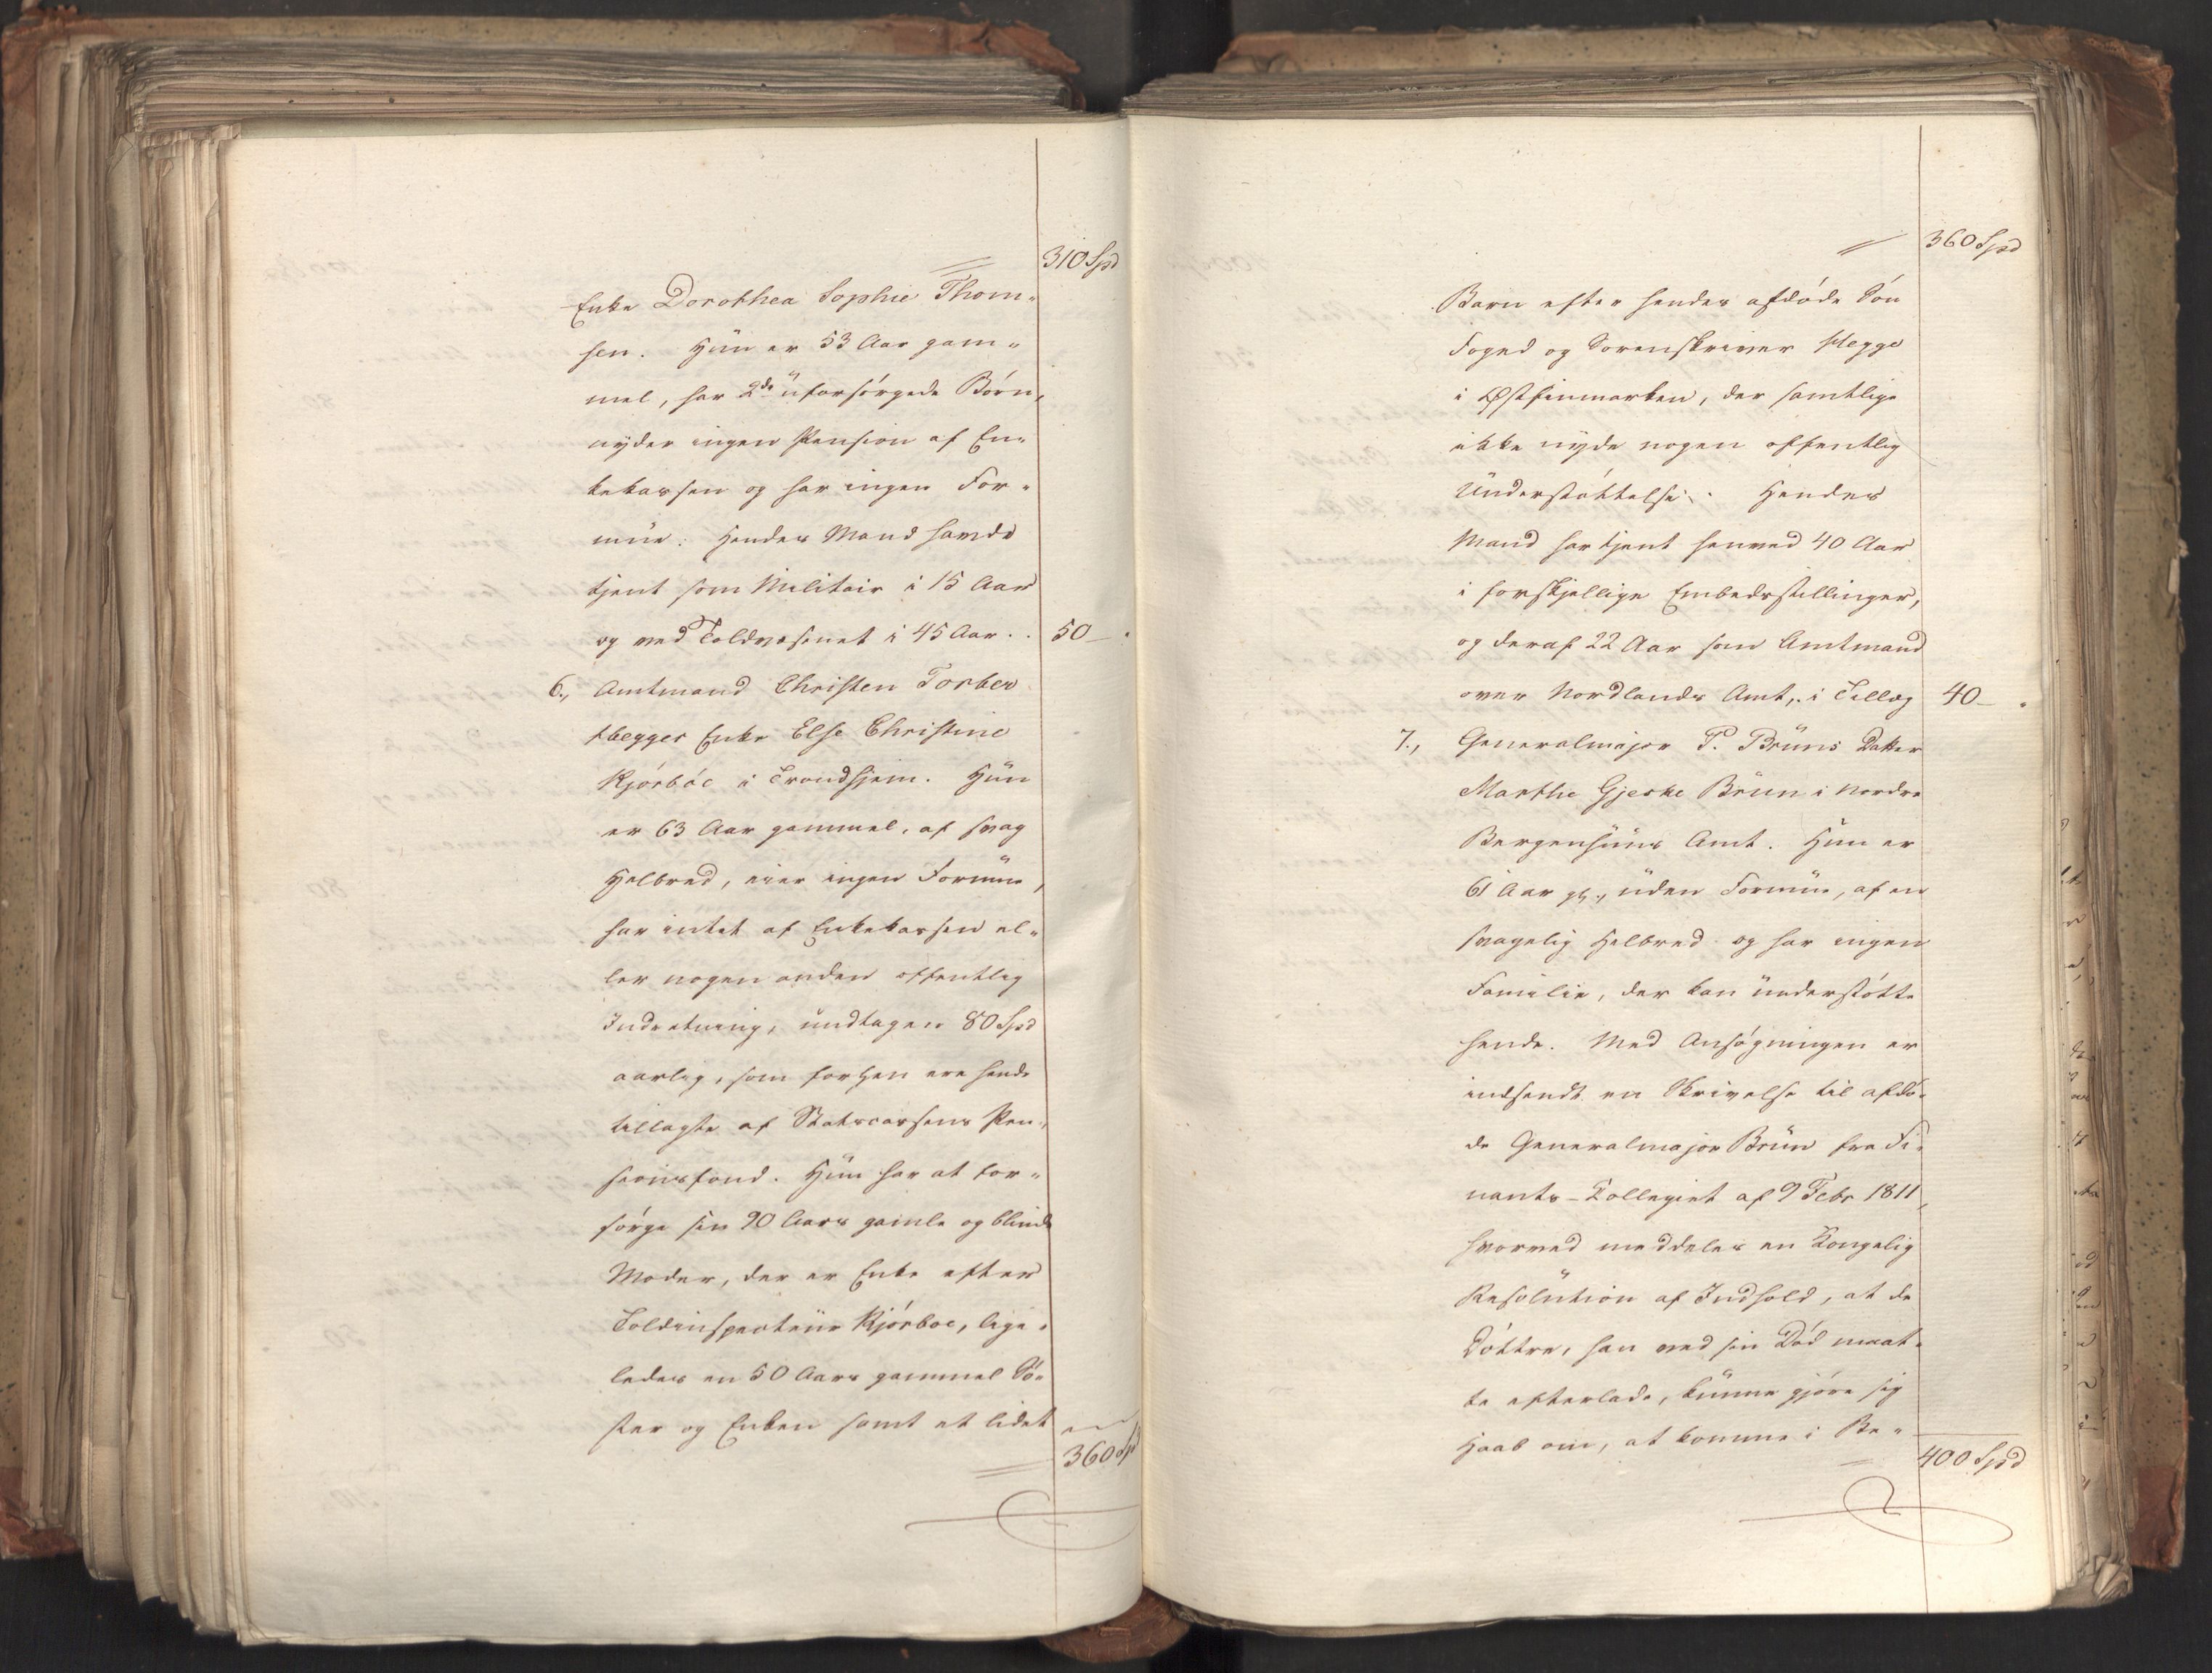 310 Spd
Enke Dorothea Sophie Thom-
sen. Hun er 53 Aar gam-
mel, har 2de uforsörgede Börn,
nyder ingen Pension af En-
kekassen og har ingen For-
mue. Hendes Mand havde
tjent som Militair i 15 Aar
og ved Toldvæsenet i 45 Aar . . 50 -
6., Amtmand Christen Torber
Hegges Enke Else Christine
Kjörböe i Trondhjem. Hun
er 63 Aar gammel, af svag
Helbred, eier ingen Formue,
har intet af Enkekassen el-
ler nogen anden offentlig
Indretning, undtagen 80 Spd
aarlig, som forhen ere hende
tillagte af Statscassens Pen-
sionsfond. Hun har at for-
sörge sin 90 Aars gamle og blinde
Moder, der er Enke efter
Toldinspecteur Kjörboe, lige-
ledes en 50 Aars gammel Sö-
ster og Enken samt et lidet
360 Sp
360 Spd
Barn efter hendes afdöde Sön
Foged og Sorenskriver Hegge
i Østfinmarken, der samtlige
ikke nyde nogen offentlig
Understöttelse. Hendes
Mand har tjent henved 40 Aar
i forskjellige Embedsstillinger,
og deraf 22 Aar som Amtmand
over Nordlands Amt, i Tillæg 40 -
7., Generalmajor P. Bruns Datter
Marthe Gjeske Brun i Nordre
Bergenhuus Amt. Hun er
61 Aar gl., uden Formue, af en
svagelig Helbred og har ingen
Familie, der kan understötte
hende. Med Ansögningen er
indsendt en Skrivelse til afdö-
de Generalmajor Brun fra Fi-
nants-Collegiet af 9 Febr 1811,
hvorved meddeles en Kongelig
Resolution af Indhold, at de
Döttre, han ved sin Död maat-
te efterlade, kunne gjöre sig
Haab om, at komme i Be-
400 Spd